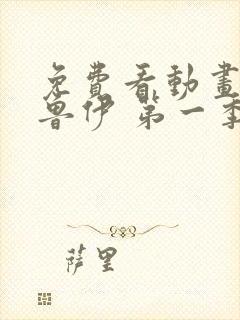 免費看動畫
魯伊 第一季
萨里